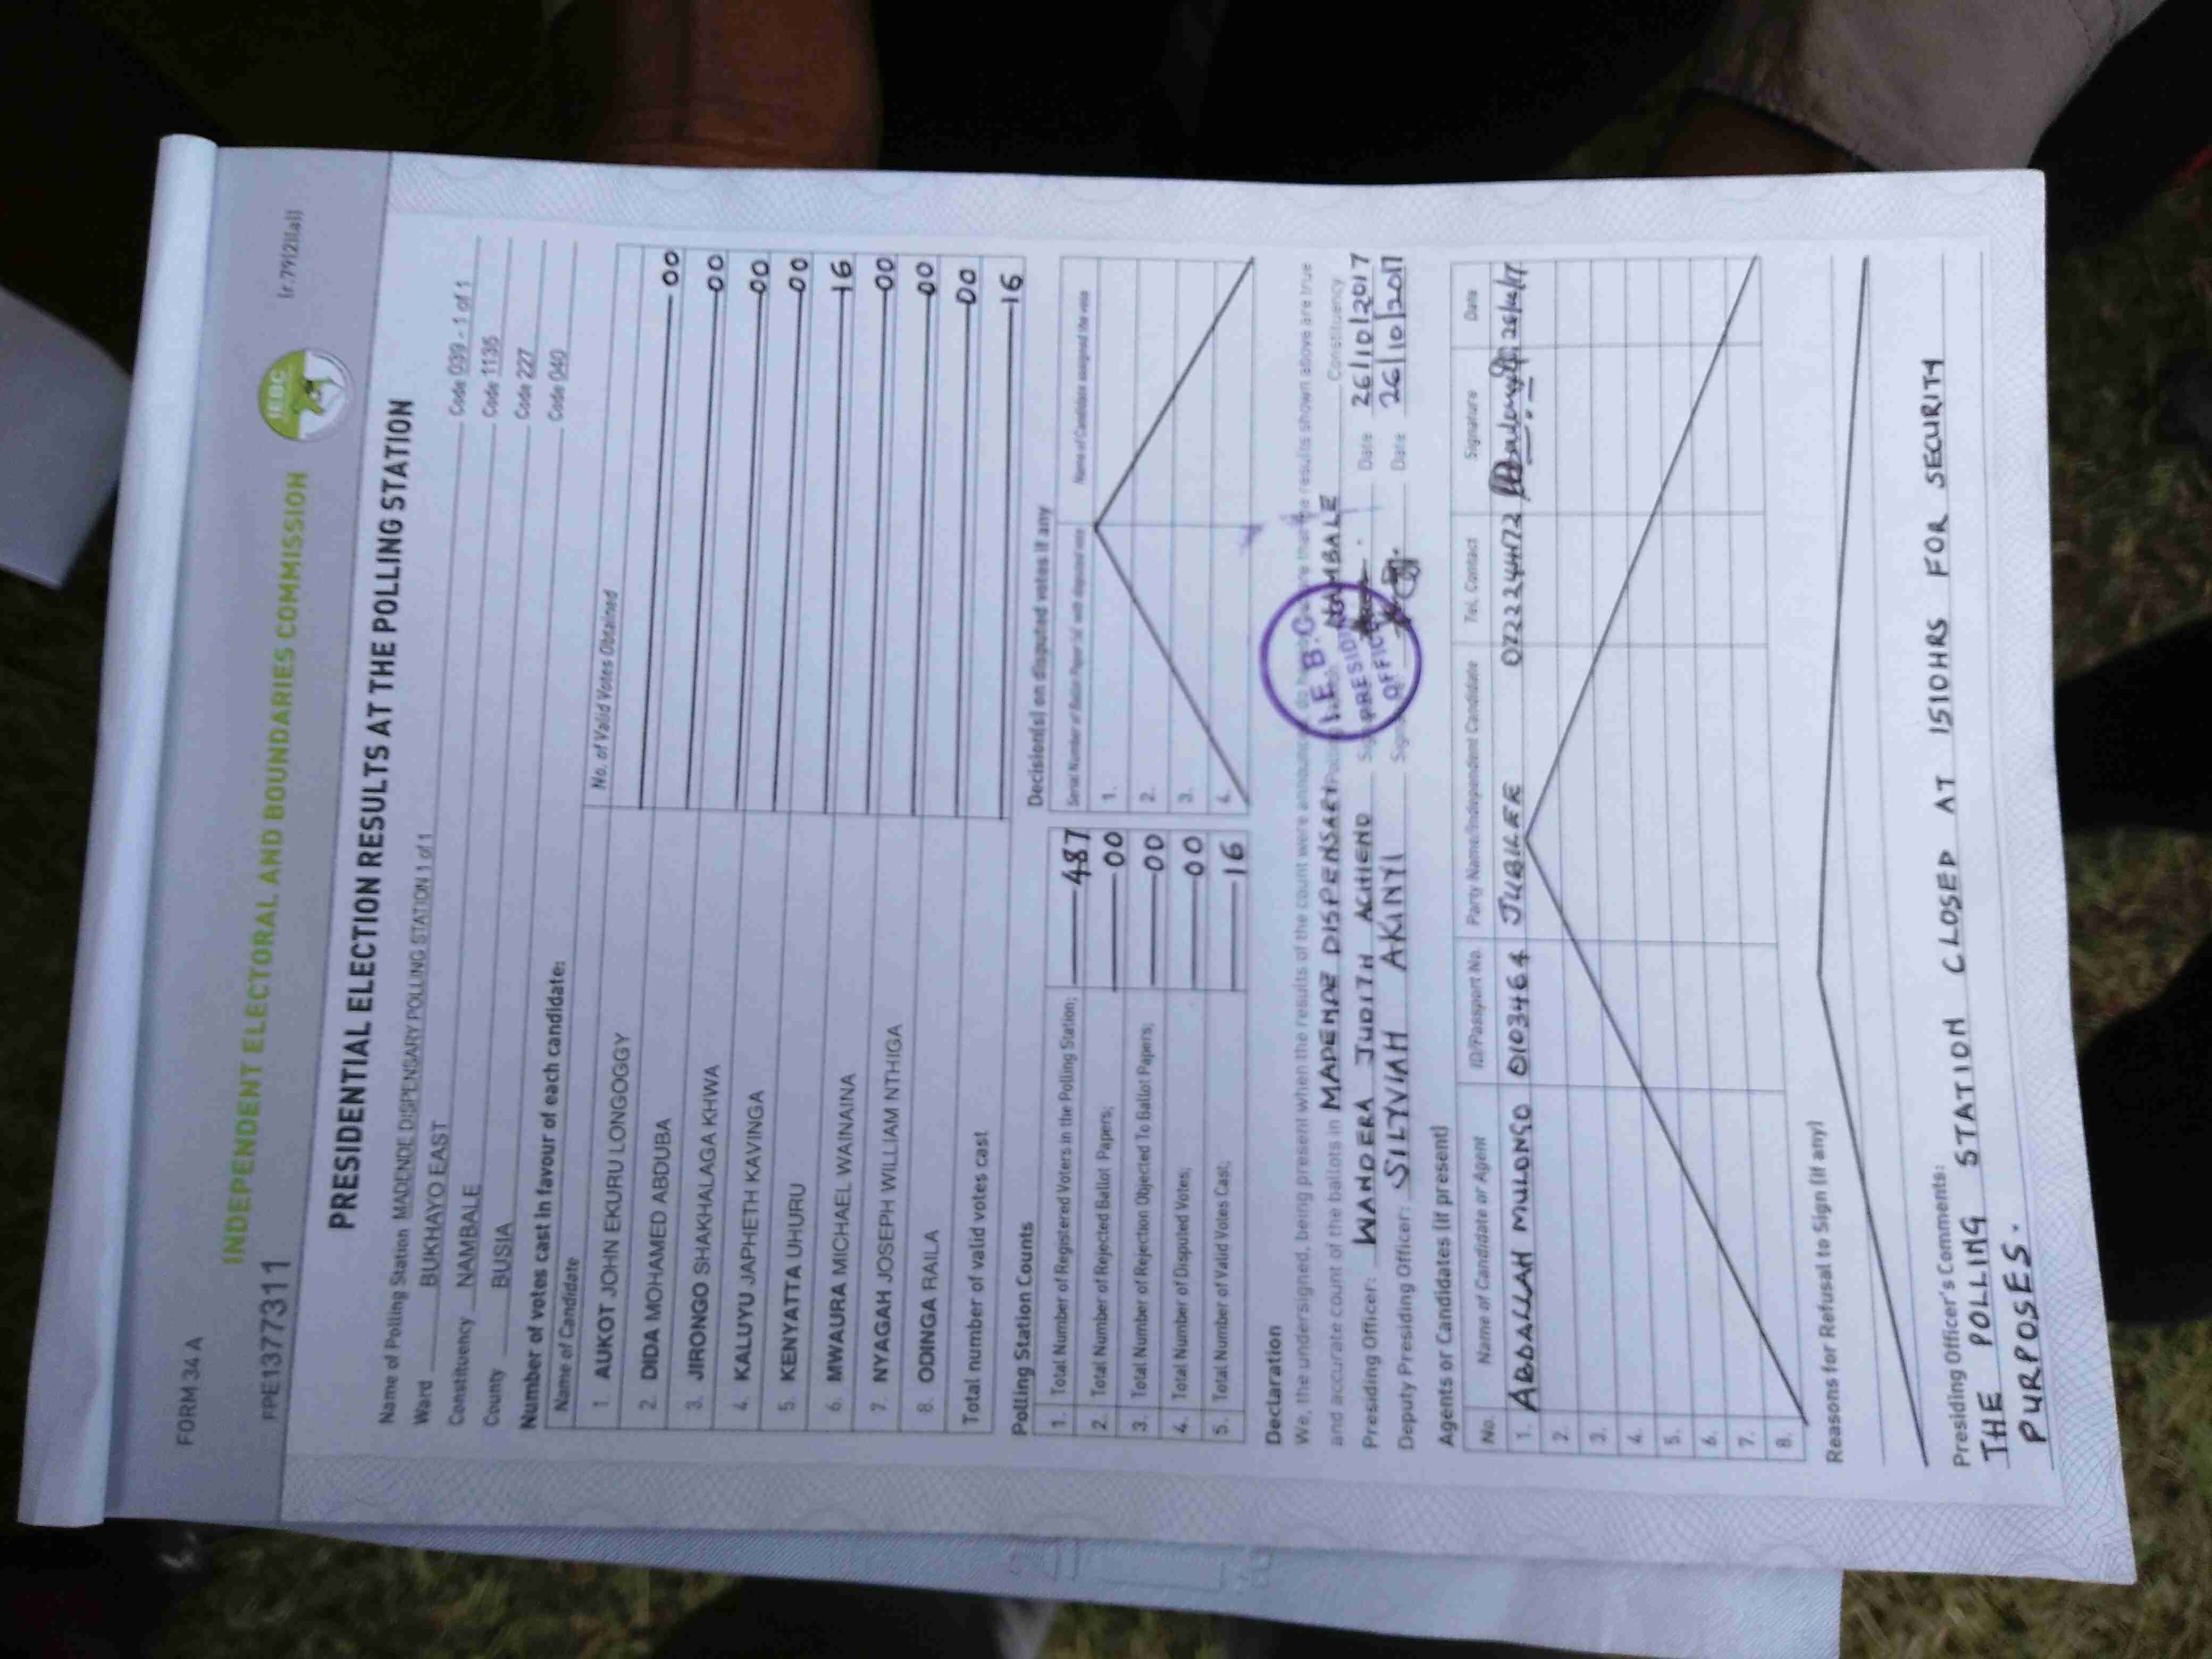 FORM 34 A
(r.79(2)(a))
INDEPENDENT ELECTORAL AND BOUNDARIES COMMISSION
IEBC
PPE1377311
PRESIDENTIAL ELECTION RESULTS AT THE POLLING STATION
Name of Polling Station MADENDE DISPENSARY POLLING STATION 1 of 1 Code 039 - 1 of 1
Ward BUKHAYO EAST Code 1135
Constituency NAMBALE Code 227
County BUSIA Code 040
Number of votes cast in favour of each candidate:
Name of Candidate No. of Valid Votes Obtained
1. AUKOT JOHN EKURU LONGOGGY 00
2. DIDA MOHAMED ABDUBA 00
3. JIRONGO SHAKHALAGA KHWA 00
4. KALUYU JAPHETH KAVINGA 00
5. KENYATTA UHURU 16
6. MWAURA MICHAEL WAINAINA 00
7. NYAGAH JOSEPH WILLIAM NTHIGA 00
8. ODINGA RAILA 00
Total number of valid votes cast 16
Polling Station Counts Decision(s) on disputed votes if any
1. Total Number of Registered Voters in the Polling Station; 487
2. Total Number of Rejected Ballot Papers; 00
3. Total Number of Rejection Objected To Ballot Papers; 00
4. Total Number of Disputed Votes; 00
5. Total Number of Valid Votes Cast; 16
Serial Number of Ballot Paper (s) with disputed vote Name of Candidate assigned the vote
1.
2.
3.
4.
Declaration
We, the undersigned, being present when the results of the count were announced, do hereby declare that the results shown above are true
and accurate count of the ballots in MADENDE DISPENSARY Polling NAMBALE Constituency
Presiding Officer: WANDERA JUDITH ACHIENO Date 26/10/2017
Deputy Presiding Officer: SILYVIAH AKINYI Date 26/10/2017
I.E.B.C
PRESIDING
OFFICER
Agents or Candidates (if present)
No. Name of Candidate or Agent ID/Passport No. Party Name/Independent Candidate Tel. Contact Signature Date
1. ABDALLAH MULONGO 0103464 JUBILEE 0722224472 26/10/17
2.
3.
4.
5.
6.
7.
8.
Reasons for Refusal to Sign (if any)
Presiding Officer's Comments:
THE POLLING STATION CLOSED AT 1510HRS FOR SECURITY
PURPOSES.